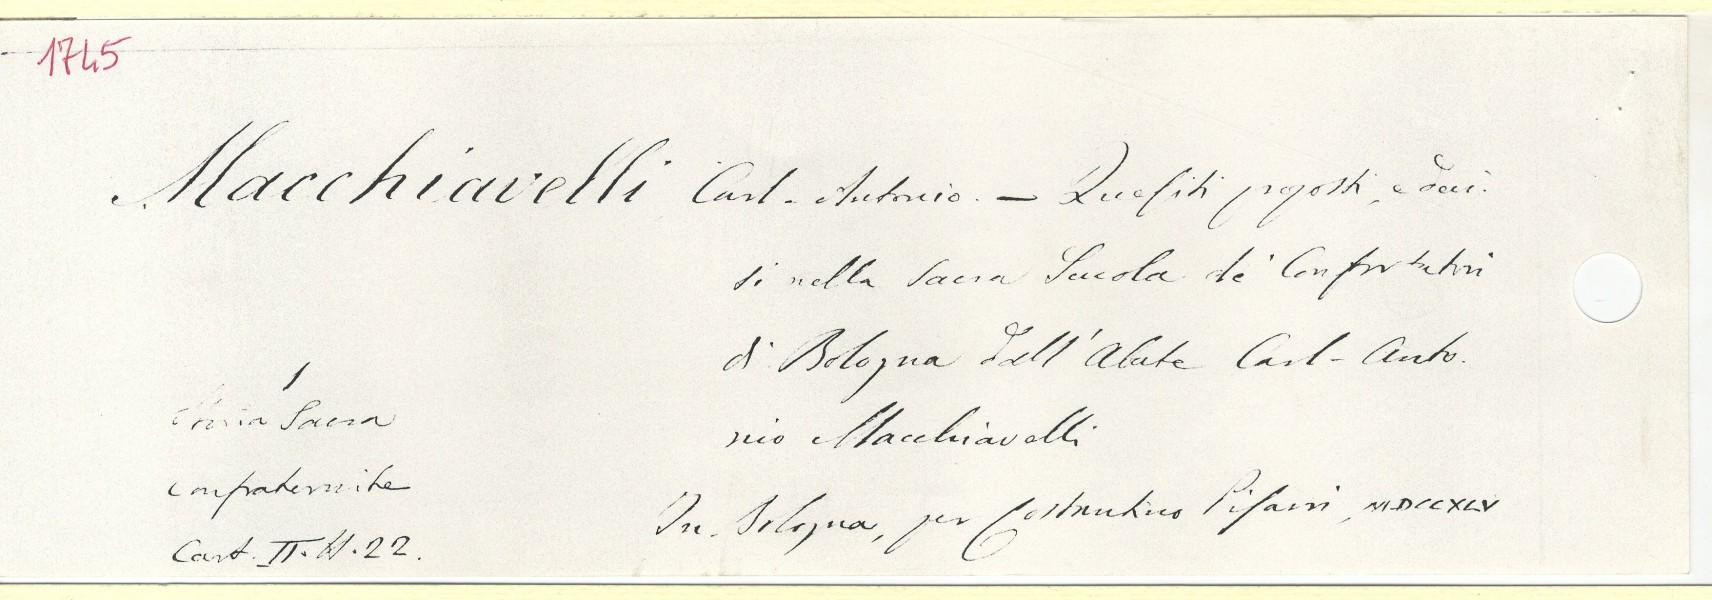 1745
Macchiavelli Carl-Antonio. — Quesiti proposti, e deci-
si nella sacra Scuola de' Confortatori
di Bologna dall' Abate Carl-Anto-
nio Macchiavelli
In Bologna, per Costantino Pisarri, MDCCXLV
Storia Sacra
Confraternite
Cart. II. H. 22.